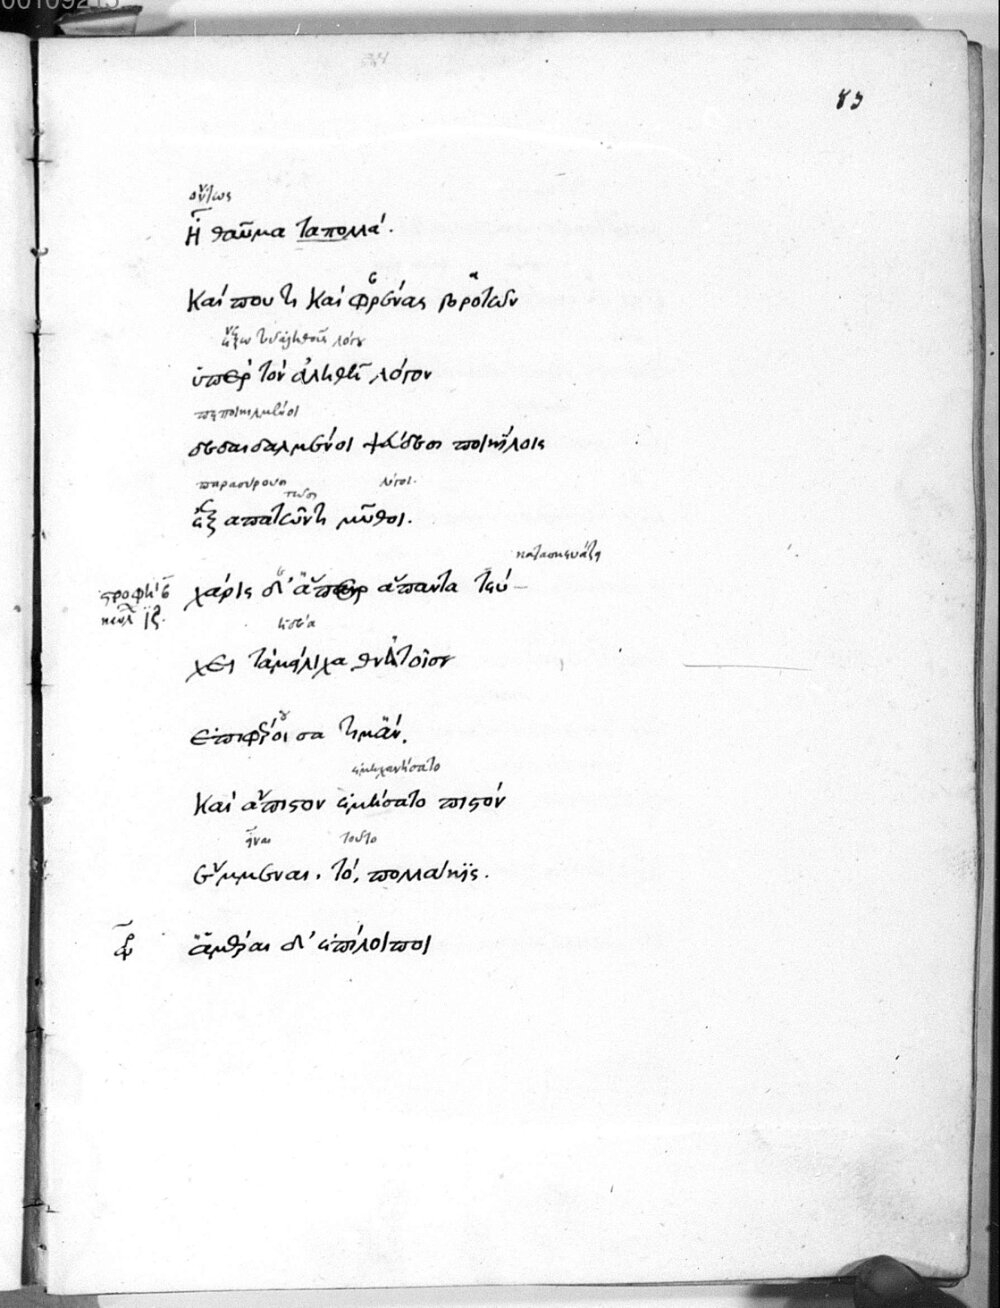 00109213
83
ὄντως
Ἦ θαῦμα τὰ πολλά.
Καί που τι καὶ φρένας βροτῶν
ἔξω τοῦ ἀληθοῦς λόγου
ὑπὲρ τὸν ἀληθῆ λόγον
πεποικιλμένοι
δεδαιδαλμένοι ψεύδεσι ποικίλοις
παρασύρουσι λόγοι.
ἐξ απατῶντι μῦθοι.
κατασκευάζη
στροφὴ χάρις δ' ἅπερ ἅπαντα τεύ-
κωλ ιζ. ἡδέα
χει τὰ μείλιχα θνατοῖσιν
ἐπιφέροι σα τιμὰν.
ἐμηχανήσατο
Καὶ ἄπιστον ἐμήσατο πιστόν
εἶναι τοῦτο
ἔμμεναι. τὸ, πολλάκις.
ἁμέραι δ' ἐπίλοιποι